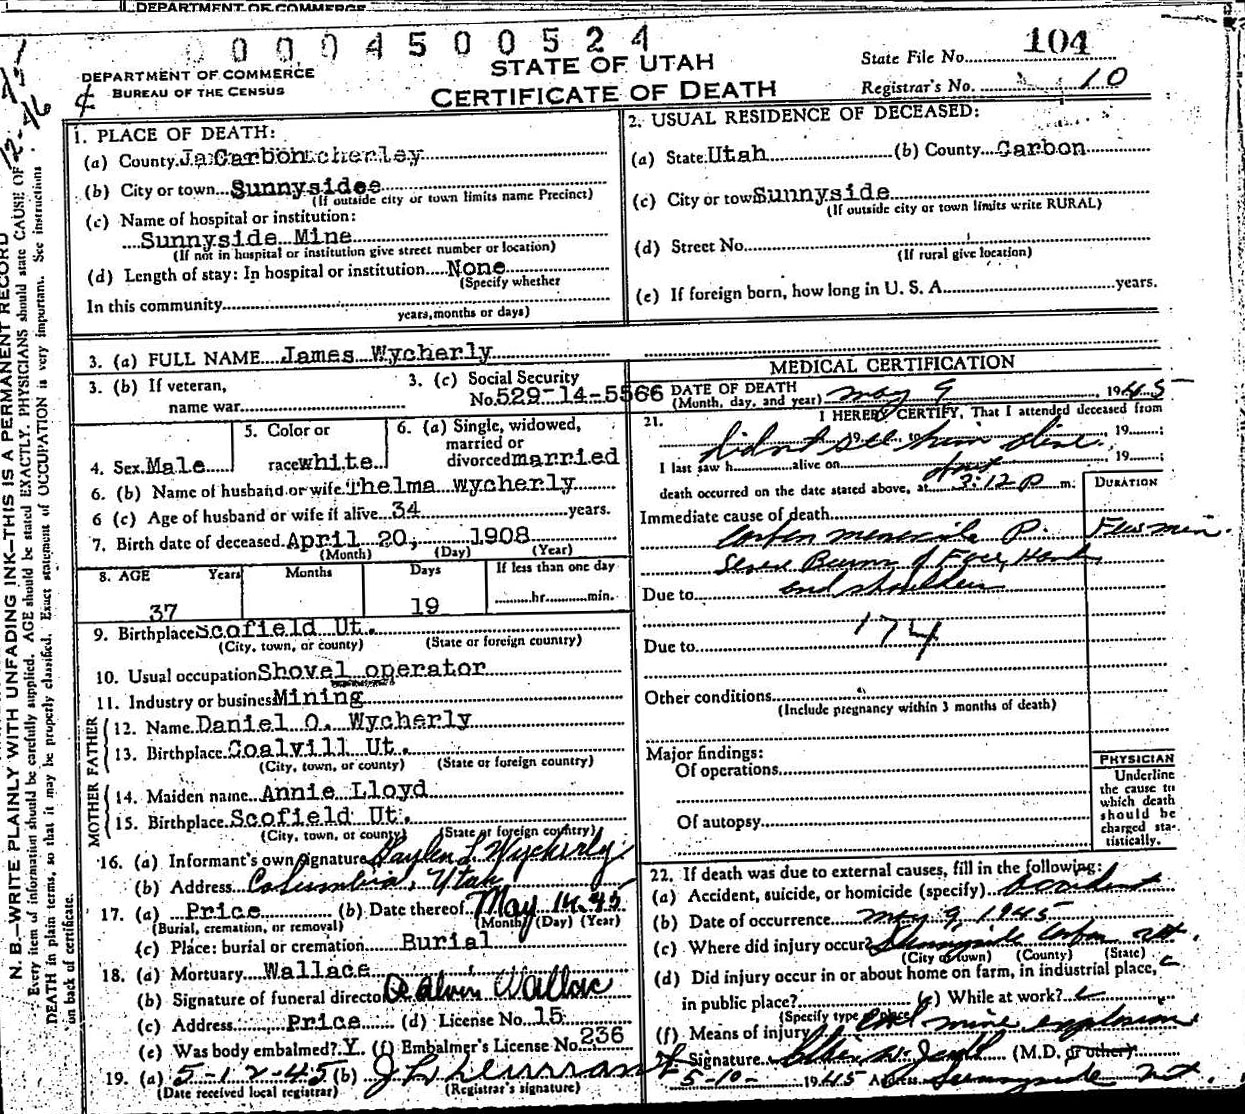 DEPARTMENT OF COMMERCE
0 0 0 0 4 5 0 0 5 2 4
DEPARTMENT OF COMMERCE
BUREAU OF THE CENSUS
STATE OF UTAH
CERTIFICATE OF DEATH
State File No. 104
Registrar's No. 10
N. B.—WRITE PLAINLY WITH UNFADING INK—THIS IS A PERMANENT RECORD
Every item of information should be carefully supplied. AGE should be stated EXACTLY. PHYSICIANS should state CAUSE OF
DEATH in plain terms, so that it may be properly classified. Exact statement of OCCUPATION is very important. See instructions
on back of certificate.
1. PLACE OF DEATH:
(a) County Carbon
(b) City or town Sunnyside
(If outside city or town limits name Precinct)
(c) Name of hospital or institution:
Sunnyside Mine
(If not in hospital or institution give street number or location)
(d) Length of stay: In hospital or institution None
(Specify whether
In this community
years, months or days)
2. USUAL RESIDENCE OF DECEASED:
(a) State Utah (b) County Carbon
(c) City or town Sunnyside
(If outside city or town limits write RURAL)
(d) Street No.
(If rural give location)
(e) If foreign born, how long in U. S. A. years.
3. (a) FULL NAME James Wycherly
3. (b) If veteran,
name war
3. (c) Social Security
No. 529-14-5566
4. Sex Male
5. Color or
race white
6. (a) Single, widowed,
married or
divorced married
6. (b) Name of husband or wife Thelma Wycherly
6 (c) Age of husband or wife if alive 34 years.
7. Birth date of deceased April 20, 1908
(Month) (Day) (Year)
8. AGE Years Months Days If less than one day
37 19 hr. min.
9. Birthplace Scofield Ut.
(City, town, or county) (State or foreign country)
10. Usual occupation Shovel operator
11. Industry or business Mining
FATHER
12. Name Daniel O. Wycherly
13. Birthplace Coalvill Ut.
(City, town, or county) (State or foreign country)
MOTHER
14. Maiden name Annie Lloyd
15. Birthplace Scofield Ut.
(City, town, or county) (State or foreign country)
16. (a) Informant's own signature L. Wycherly
(b) Address Columbia, Utah
17. (a) Price (b) Date thereof May 14 45
(Burial, cremation, or removal) (Month) (Day) (Year)
(c) Place: burial or cremation Burial
18. (a) Mortuary Wallace
(b) Signature of funeral director Wallace
(c) Address Price (d) License No. 15
(e) Was body embalmed? Y. (f) Embalmer's License No. 236
19. (a) 5-12-45 (b)
(Date received local registrar) (Registrar's signature)
MEDICAL CERTIFICATION
DATE OF DEATH
(Month, day, and year) May 9, 1945
21. I HEREBY CERTIFY, That I attended deceased from
didn't see him alive 19 ;
I last saw h alive on , 19 ;
death occurred on the date stated above, at 3:12 P m.
DURATION
Immediate cause of death
Carbon monoxide P. Few min.
Severe Burns of Face, Hands
Due to and shoulders
174
Due to
Other conditions
(Include pregnancy within 3 months of death)
Major findings:
Of operations
Of autopsy
PHYSICIAN
Underline
the cause to
which death
should be
charged sta-
tistically.
22. If death was due to external causes, fill in the following:
(a) Accident, suicide, or homicide (specify) Accident
(b) Date of occurrence May 9 1945
(c) Where did injury occur? Sunnyside Carbon Ut.
(City or town) (County) (State)
(d) Did injury occur in or about home on farm, in industrial place,
in public place? (e) While at work?
(Specify type of place)
(f) Means of injury coal mine explosion
Signature (M.D. or other)
5-10- 1945 Address Sunnyside Ut.